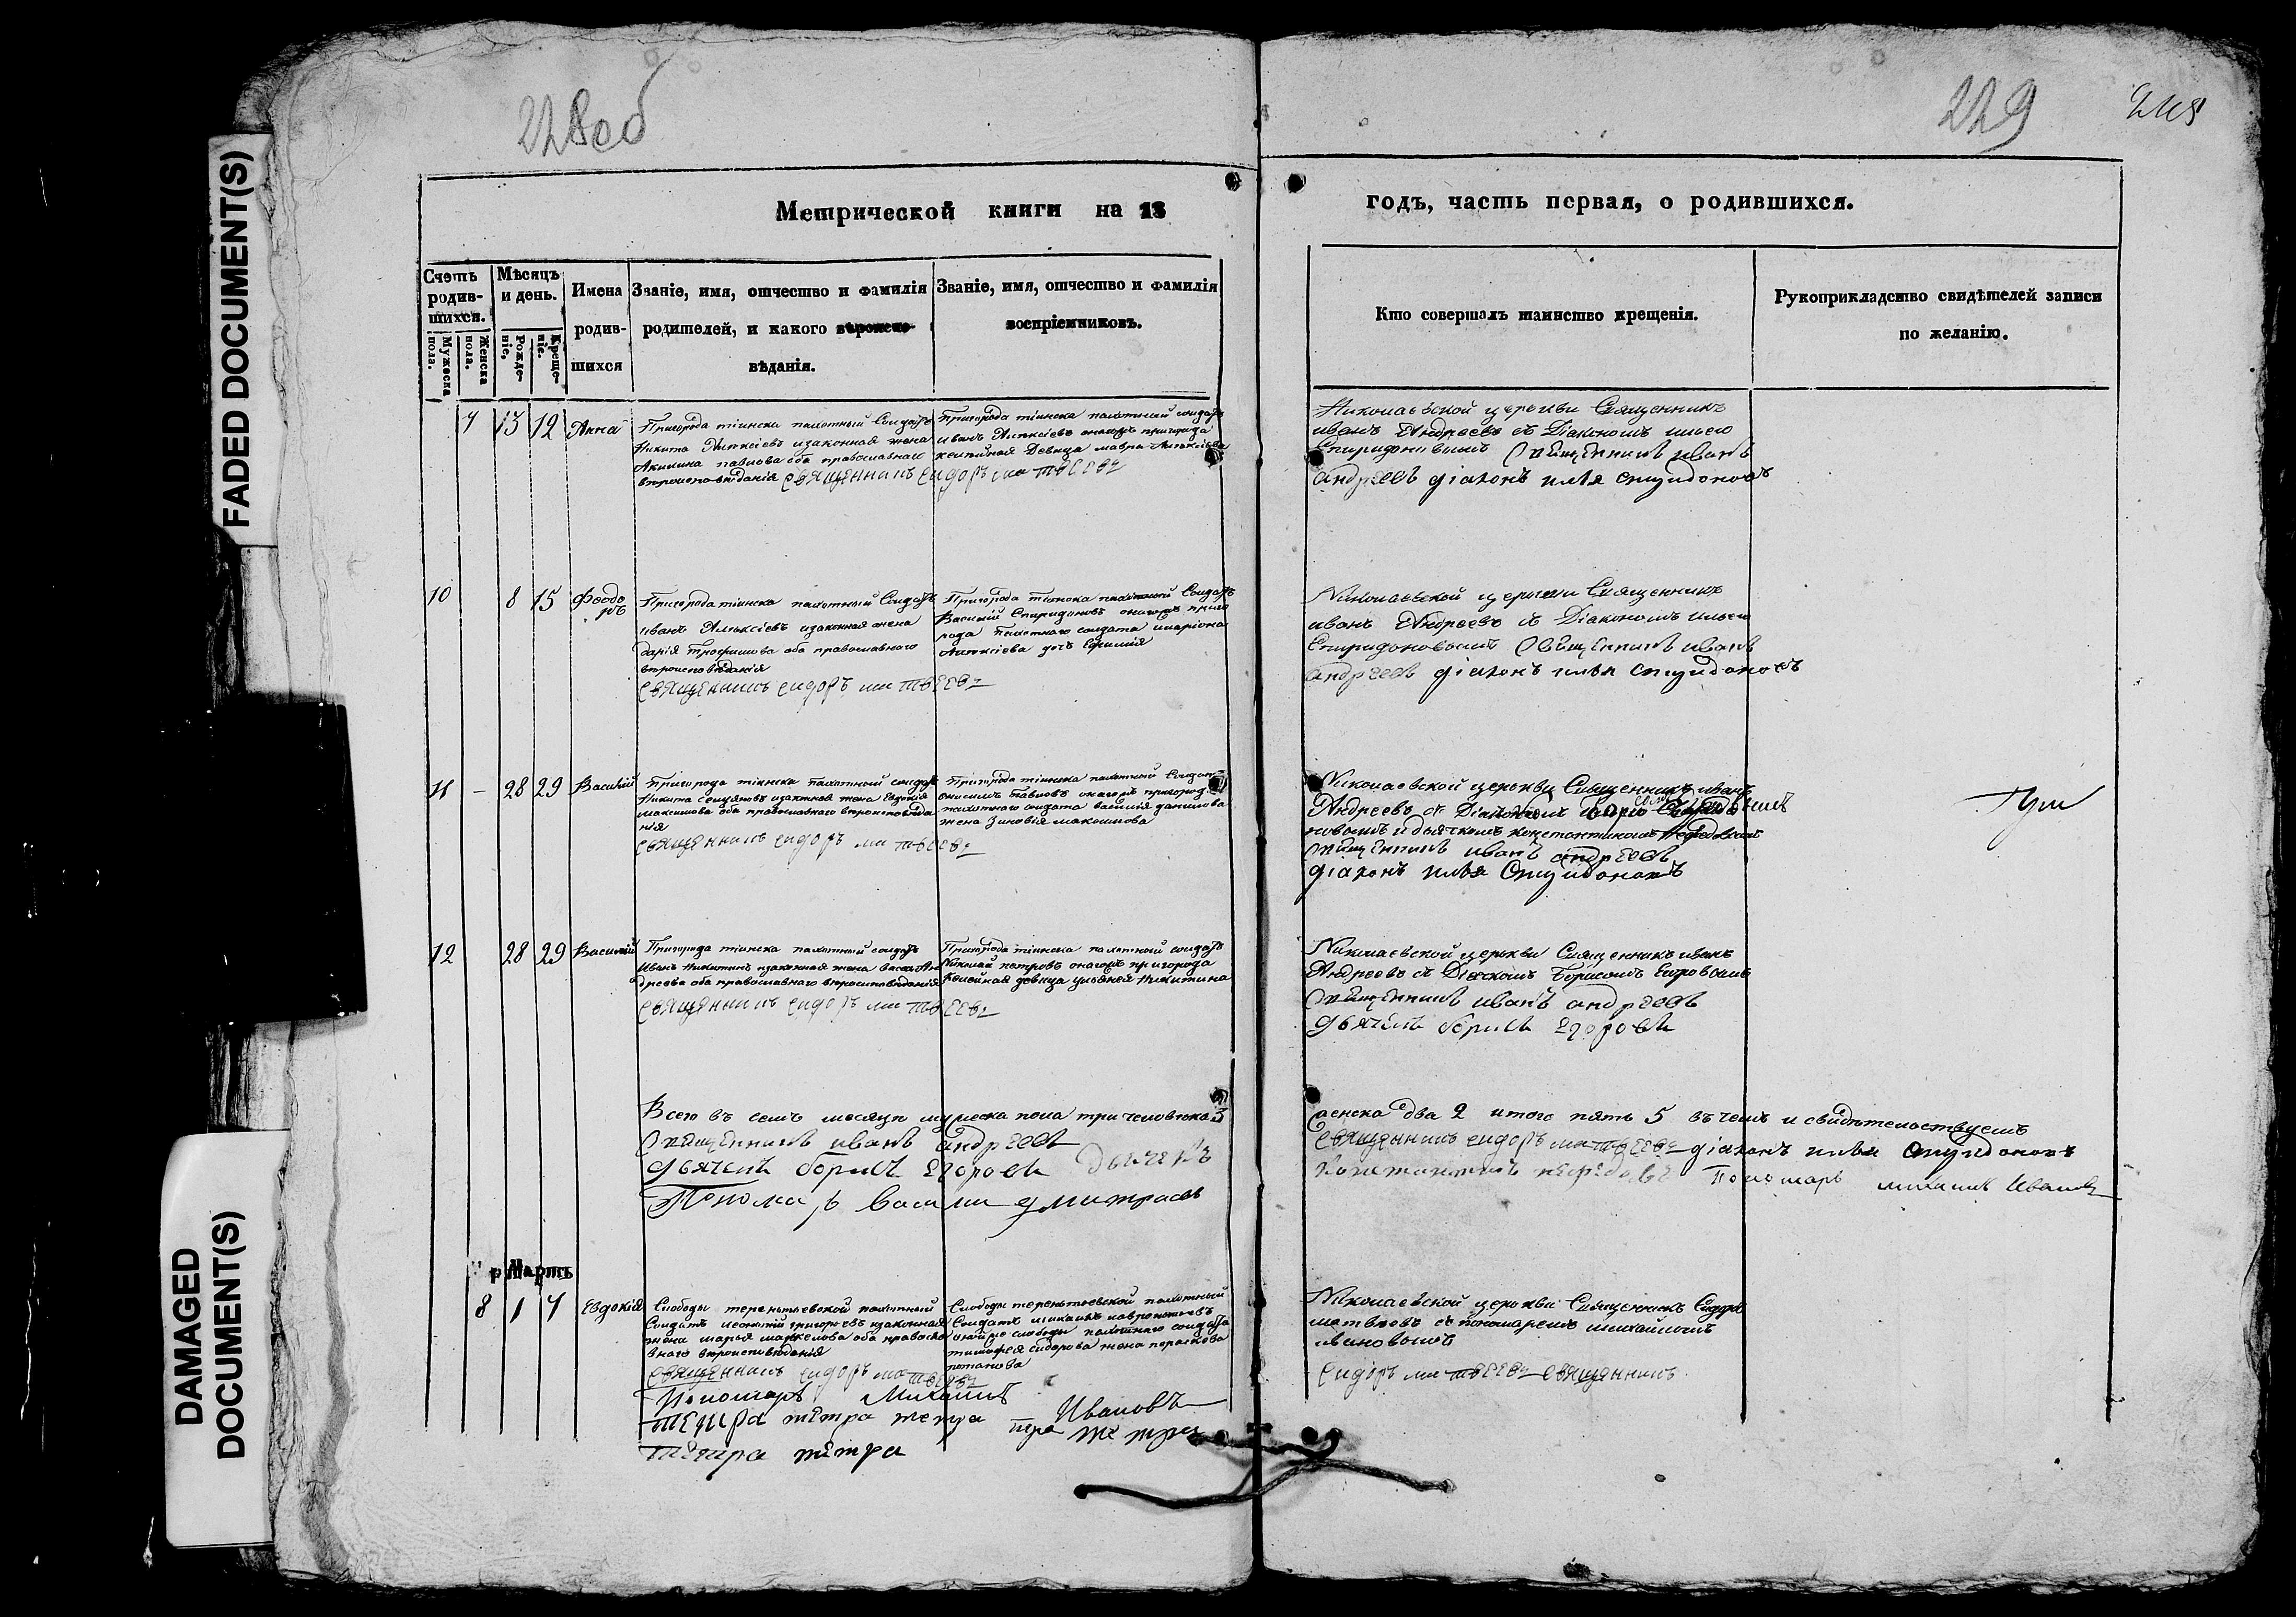 FADED DOCUMENT(S)
DAMAGED
DOCUMENT(S)
228об
229
Метрической книги на 18
годъ, часть первая, о родившихся.
Счетъ
родив-
шихся.
Мужеска
пола.
Женска
пола.
Мѣсяцъ
и день.
Рожде-
ніе.
Креще-
ніе.
Имена
родив-
шихся
Званіе, имя, отчество и фамилія
родителей, и какого вѣроиспо-
вѣданія.
Званіе, имя, отчество и фамилія
воспріемниковъ.
Кто совершалъ таинство крещенія.
Рукоприкладство свидѣтелей записи
по желанію.
7 13 19 Анна
Пригорода тіинска пахотный Солдатъ
Никита Алѣксіевъ изаконная жена
Акилина павлова оба православнаго
вѣроисповѣданія священникъ сидоръ матвеевъ
Пригорода тіинска пахотный солдатъ
иванъ Алѣксіевъ онагожъ пригорода
келѣйная Девица мавра Алѣксіева
Николаевской церкви Священникъ
иванъ Андреевъ съ Діакономъ ильею
Спиридоновымъ Священникъ иванъ
андреевъ діаконъ илья спиридоновъ
10 8 15 Феодо
ръ
Пригорода тіинска пахотный Солдатъ
иванъ Алѣксіевъ изаконная жена
дарія Трофимова оба православнаго
вѣроисповѣданія
священникъ сидоръ матвеевъ
Пригорода тіинска пахотной Солдатъ
Василій Спиридоновъ онагожъ приго
рода пахотнаго солдата иларіона
Алѣксіева дочь Ефимія
Николаевской церкви Священникъ
иванъ Андреевъ съ Діакономъ ильею
Спиридоновымъ Священникъ иванъ
андреевъ діаконъ илья спиридоновъ
11 - 28 29 Василій
Пригорода тіинска Пахотный солдатъ
Никита Семеновъ изаконная жена Евдокія
максимова оба православнаго вѣроисповѣда
нія
священникъ сидоръ матвеевъ
Пригорода тіинска пахотной Солдатъ
онисимъ Павловъ онагожъ пригорода
пахотнаго солдата василія данилова
жена Зиновія максимова
Николаевской церкви Священникъ иванъ
Андреевъ съ Діакономъ
новымъ и дьячкомъ константиномъ Нефедовымъ
священникъ иванъ андреевъ
діаконъ илья Спиридоновъ
12 28 29 Василій
Пригорода тіинска пахотный солдатъ
Иванъ Никитинъ изаконная жена васса Ан
дреева оба православнаго вѣроисповѣданія
священникъ сидоръ матвеевъ
Пригорода тіинска пахотный солдатъ
Николай петровъ онагожъ пригорода
Келейная девица ульянея Никитина
Николаевской церкви Священникъ иванъ
Андреевъ съ Дьячкомъ Борисомъ Егоровымъ
Священникъ иванъ андреевъ
дьячекъ борисъ егоровъ
Всего въ семъ месяцѣ мужеска пола три человѣка 3
женска два 2 итого пять 5 въ чемъ и свидѣтельствуемъ
Священникъ иванъ андреевъ
священникъ сидоръ матвеевъ діаконъ илья спиридоновъ
дьячекъ борисъ егоровъ дьячекъ
Константинъ нефедовъ Пономарь михаилъ Ивановъ
Пономарь василий дмитриевъ
Мартъ
8 1 4 Евдокія
Слободы терентьевской пахотный
Солдатъ леонтій григорьевъ изаконная
жена марья маркелова оба правосла
внаго вѣроисповѣданія
священникъ сидоръ матвеевъ
Слободы терентьевской пахотный
Солдатъ михаилъ
онойже слободы пахотнаго солдата
тимофея сидорова жена пораскова
потапова
Николаевской церкви Священникъ Сидоръ
матвеевъ съ пономаремъ михайломъ
ивановымъ
сидоръ матвеевъ священникъ
Пономарь Михаилъ
Ивановъ